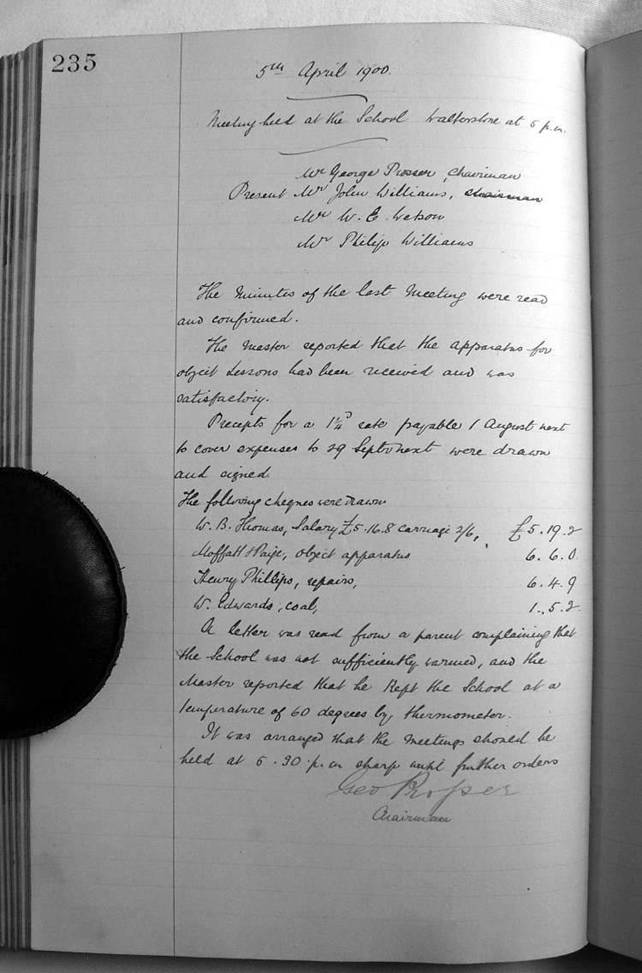 235
5th April 1900.
Meeting held at the School Walterstone at 5 p.m.
Mr George Prosser, Chairman
Present Mr John Williams, chairman
Mr W. E. Watson
Mr Philip Williams
The Minutes of the last Meeting were read
and confirmed.
The Master reported that the apparatus for
object Lessons had been received and was
satisfactory.
Precepts for a 1¼d rate payable 1 August next
to cover expenses to 29 Septr next were drawn
and signed
The following cheques were drawn
W. B. Thomas, Salary £5.16.8 carriage 2/6, £5.19.2
Moffatt & Paige, object apparatus 6.6.0.
Henry Phillips, repairs, 6.4.9
W. Edwards, coal, 1.5.2
A letter was read from a parent complaining that
the School was not sufficiently warmed, and the
Master reported that he kept the School at a
temperature of 60 degrees by thermometer.
It was arranged that the meetings should be
held at 5.30 p.m sharp until further orders
Geo Prosser
Chairman